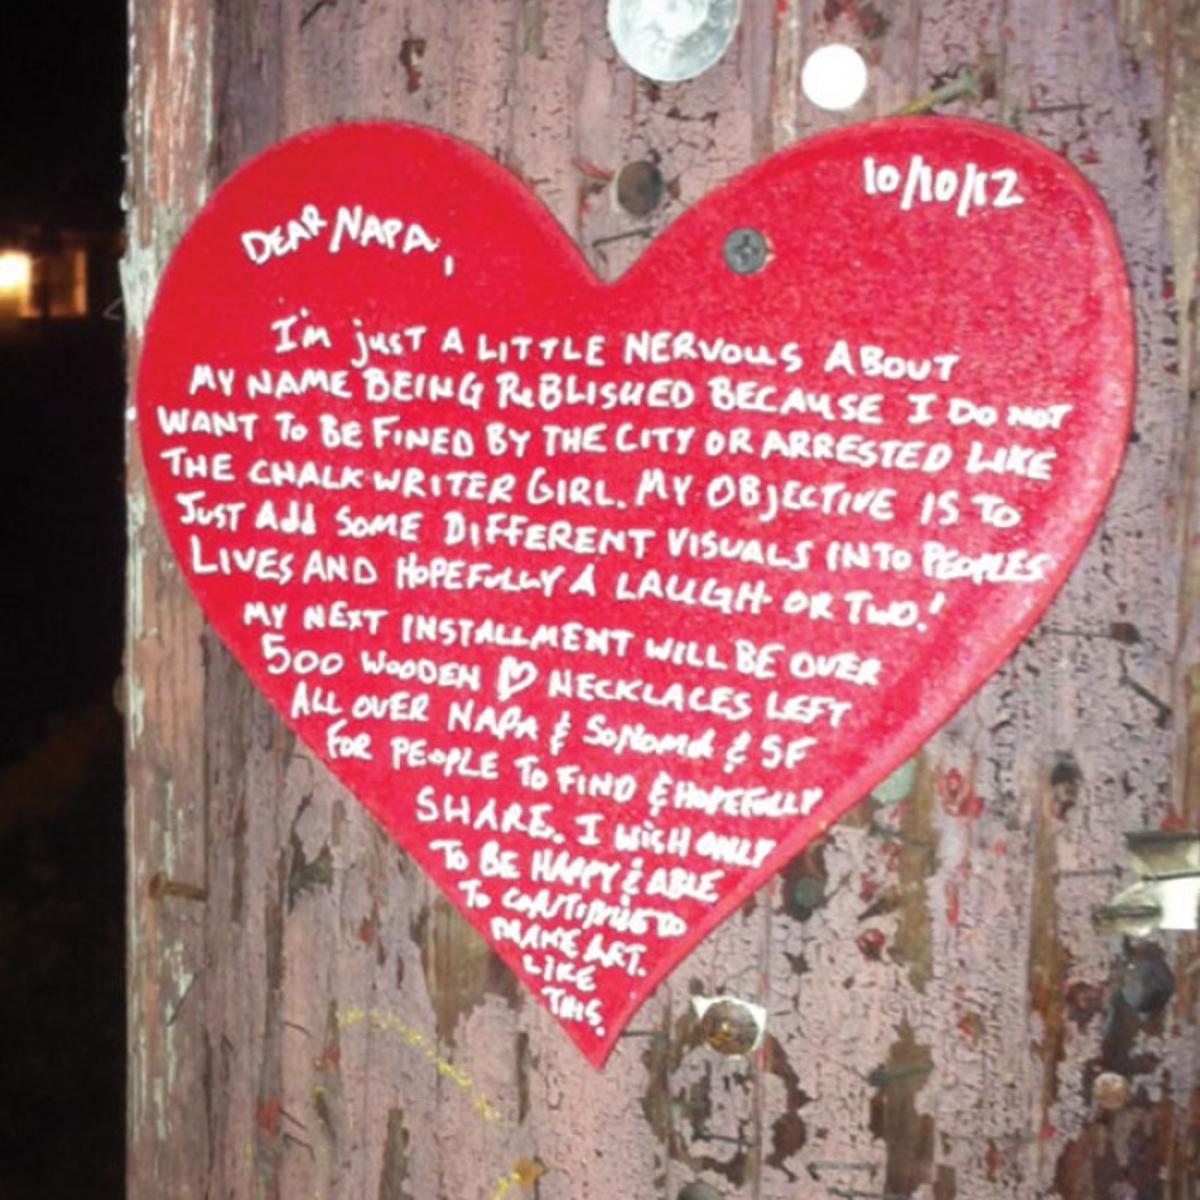 10/10/12
DEAR NAPA,
I'm just A LITTLE NERVOUS ABOUT
MY NAME BEING PUBLISHED BECAUSE I DO NOT
WANT TO BE FINED BY THE CITY OR ARRESTED LIKE
THE CHALK WRITER GIRL. MY OBJECTIVE IS TO
JUST Add SOME DIFFERENT VISUALS INTO PEOPLES
LIVES AND HOPEFULLY A LAUGH OR TWO!
MY NEXT INSTALLMENT WILL BE OVER
500 WOODEN ♡ NECKLACES LEFT
ALL OVER NAPA & SONOMA & SF
FOR PEOPLE TO FIND & HOPEFULLY
SHARE. I WISH ONLY
TO BE HAPPY & ABLE
TO CONTINUE TO
MAKE ART.
LIKE
THIS.